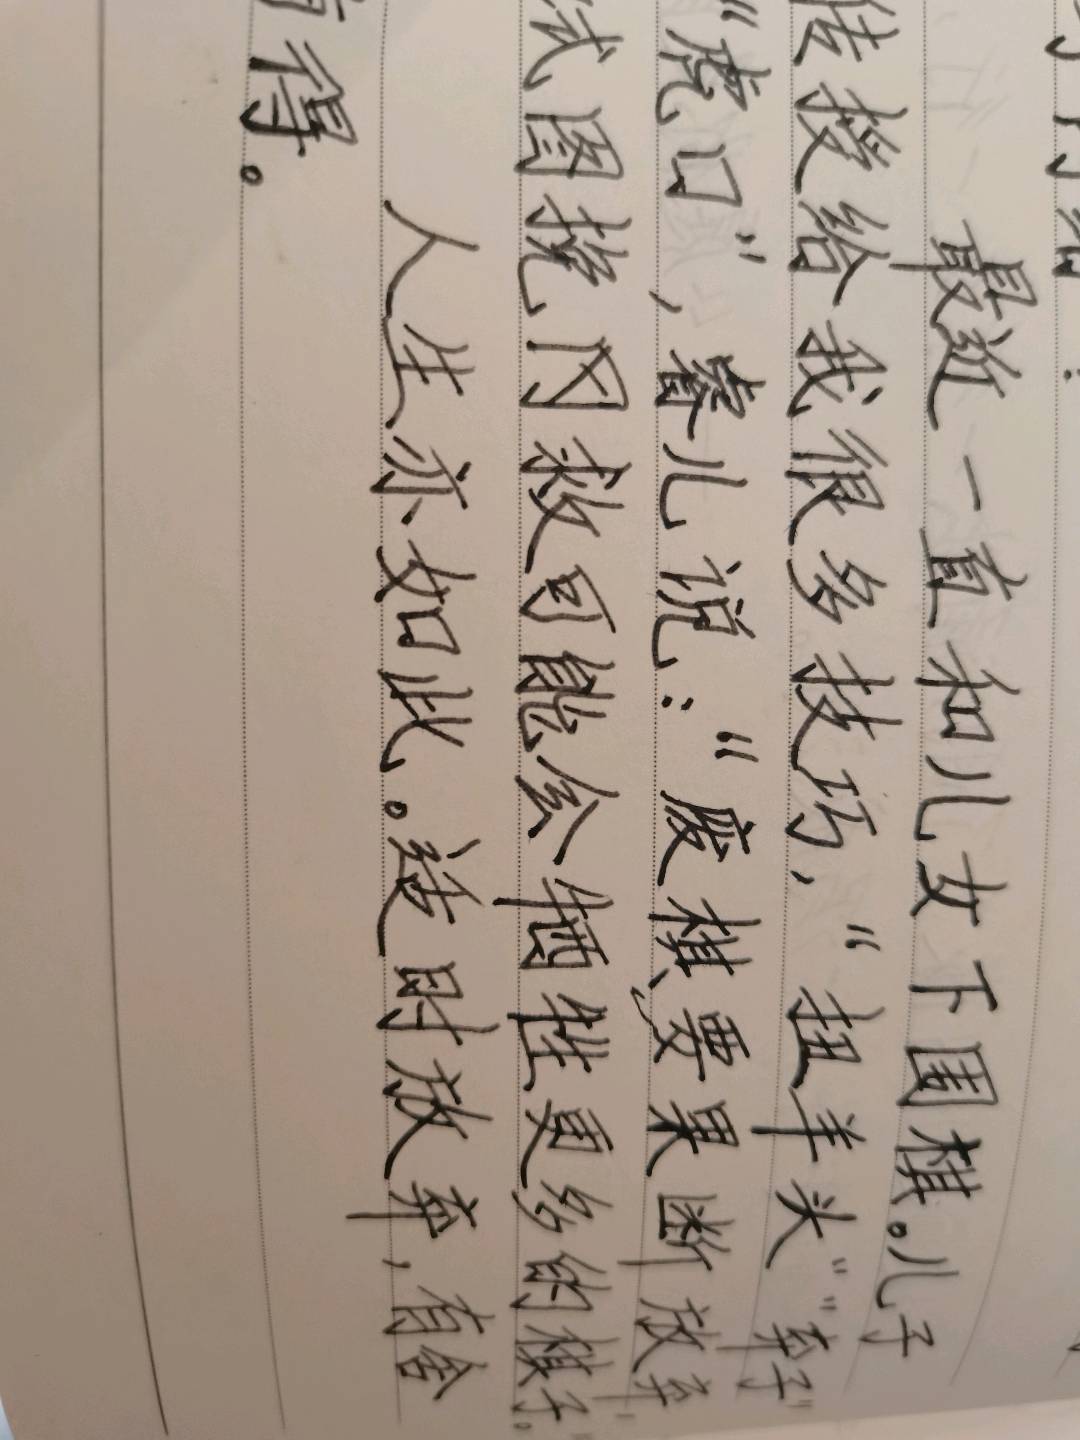 最近一直和儿女下围棋。儿子
传授给我很多技巧,“扭羊头”“弃子”
“虎口”,睿儿说:“废棋、要果断放弃,
试图挽救可能会牺牲更多的棋子。”
人生亦如此。适时放弃,有舍
有得。